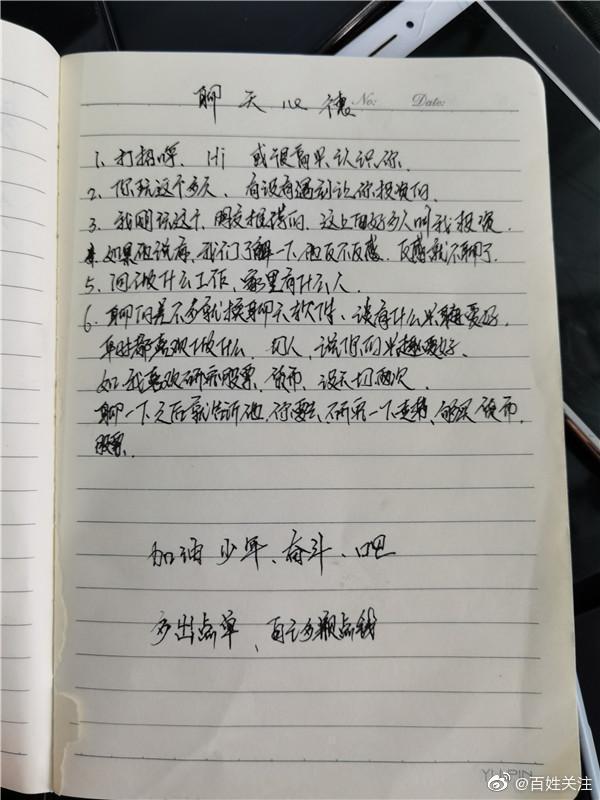 聊天心德
No: Date:
1、打招呼、Hi 或很高兴认识你
2、你玩这个多久、有没有遇到让你投资的
3、我刚玩这个、网友推荐的、这上面好多人叫我投资
如果他说有、我们了解一下、他反不反感、反感就不聊了
5、问做什么工作、家里有什么人
6、聊的差不多就换聊天软件、谈有什么兴趣爱好、
平时都喜欢做什么、切入、说你的兴趣爱好、
如、我喜欢研究股票、货币、每天切两次
聊一下之后就告诉他、你要去研究一下走势、购买货币、
股票、
加油少年、奋斗、吧
多出点单、自己多赚点钱
YUUPIN
@百姓关注